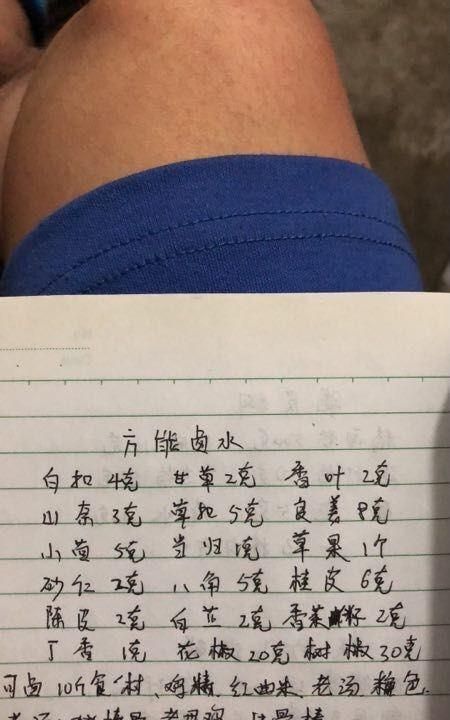 万能卤水
白扣 4克 甘草 2克 香叶 2克
山奈 3克 草扣 5克 良姜 8克
小茴 5克 当归 1克 草果 1个
砂仁 2克 八角 5克 桂皮 6克
陈皮 2克 白芷 2克 香菜籽 2克
丁香 1克 花椒 20克 树椒 30克
可卤 10斤食材、鸡精、红曲米、老汤 糖色.